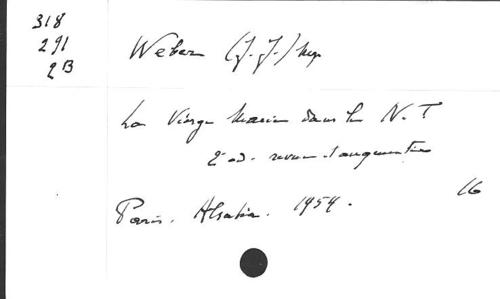 318
291
2B
Weber (J. J.) Mgr
La Vierge Marie dans le N. T
2e ed. revue et augmentée
Paris. Alsatia. 1954.
16